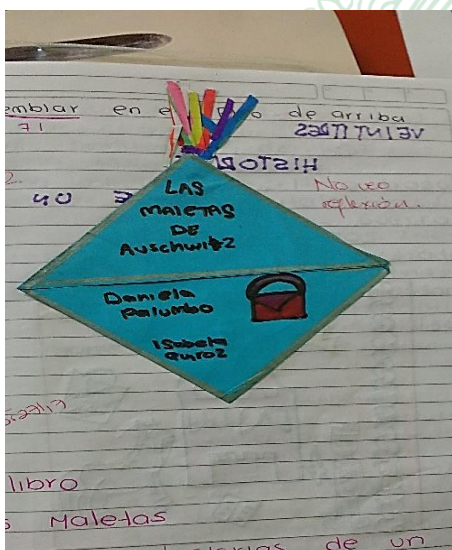 emblar en e de arriba
71
VEINTITRES
HISTOR
No veo
reflexión.
LAS
MALETAS
DE
Auschwitz
Daniela
Palumbo
Isabela
Quiroz
libro
Maletas
de un